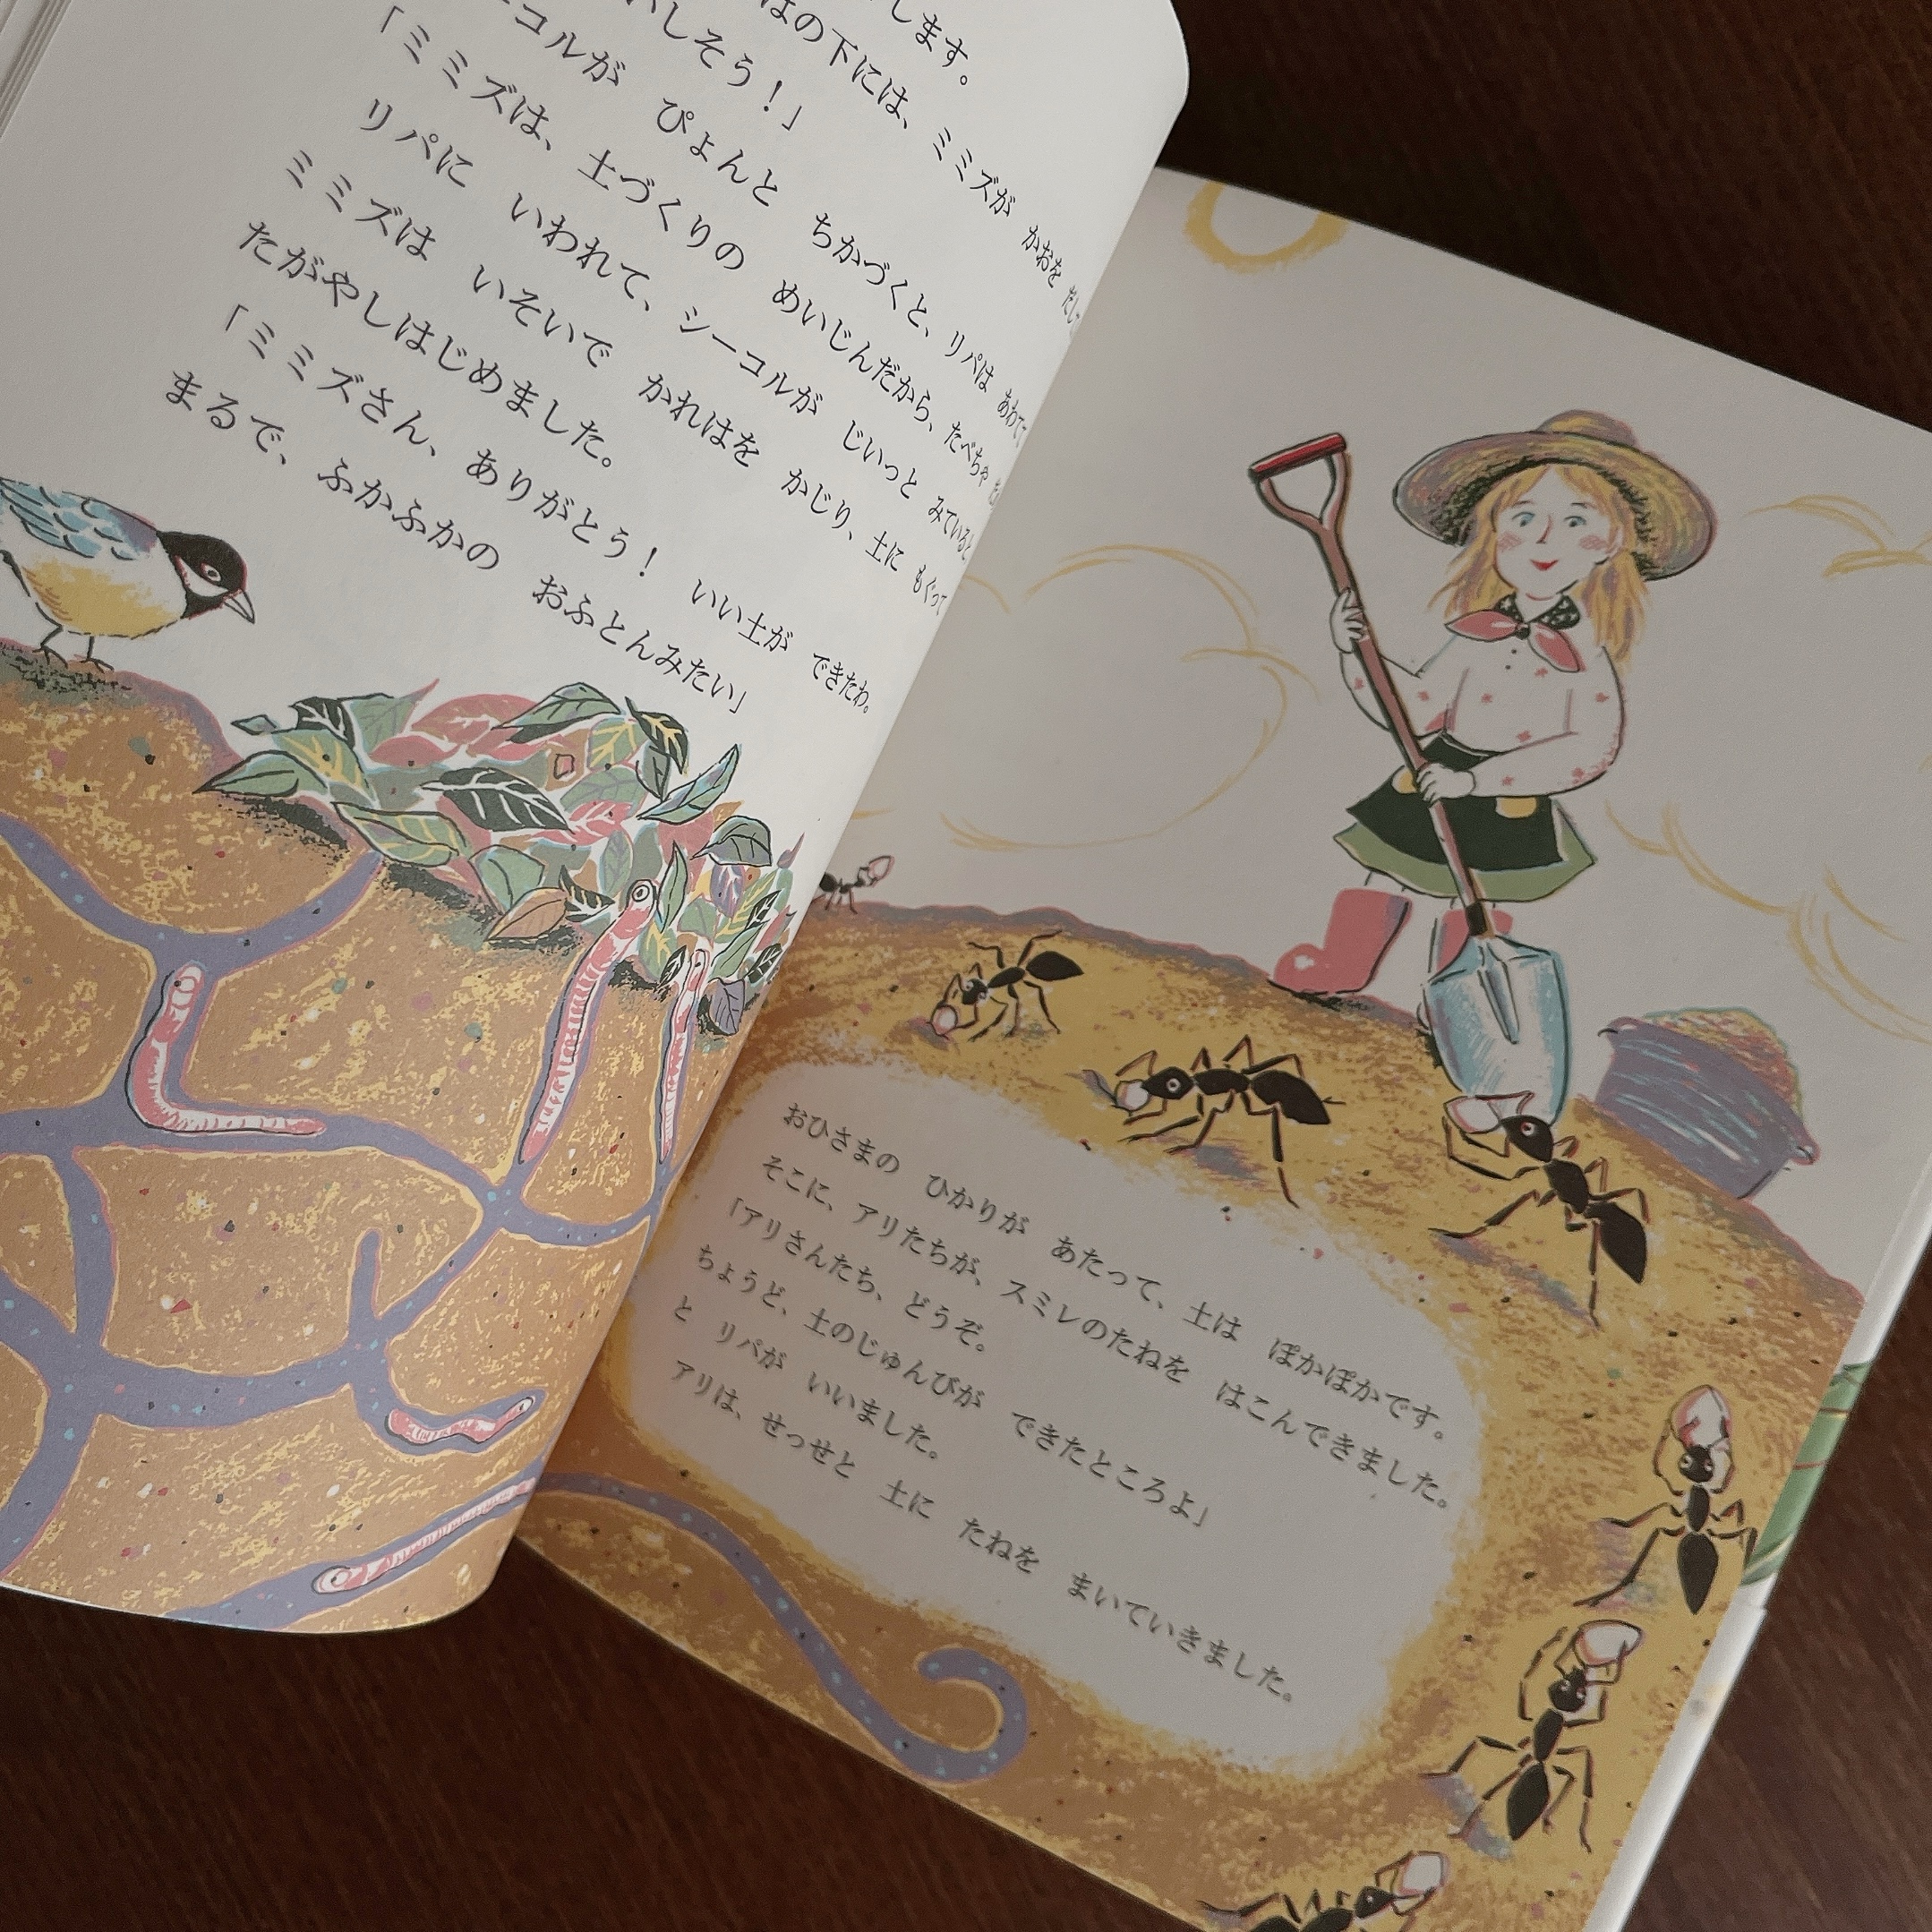 します。
はの下には、ミミズが かおを
いしそう！」
ーコルが ぴょんと ちかづくと、リパは あわてて
「ミミズは、土づくりの めいじんだから、たべちゃ
リパに いわれて、シーコルが じいっと みていると
ミミズは いそいで かれはを かじり、土に もぐって
たがやしはじめました。
「ミミズさん、ありがとう！ いい土が できたわ。
まるで、ふかふかの おふとんみたい」
おひさまの ひかりが あたって、土は ぽかぽかです。
そこに、アリたちが、スミレのたねを はこんできました。
「アリさんたち、どうぞ。
ちょうど、土のじゅんびが できたところよ」
と リパが いいました。
アリは、せっせと 土に たねを まいていきました。